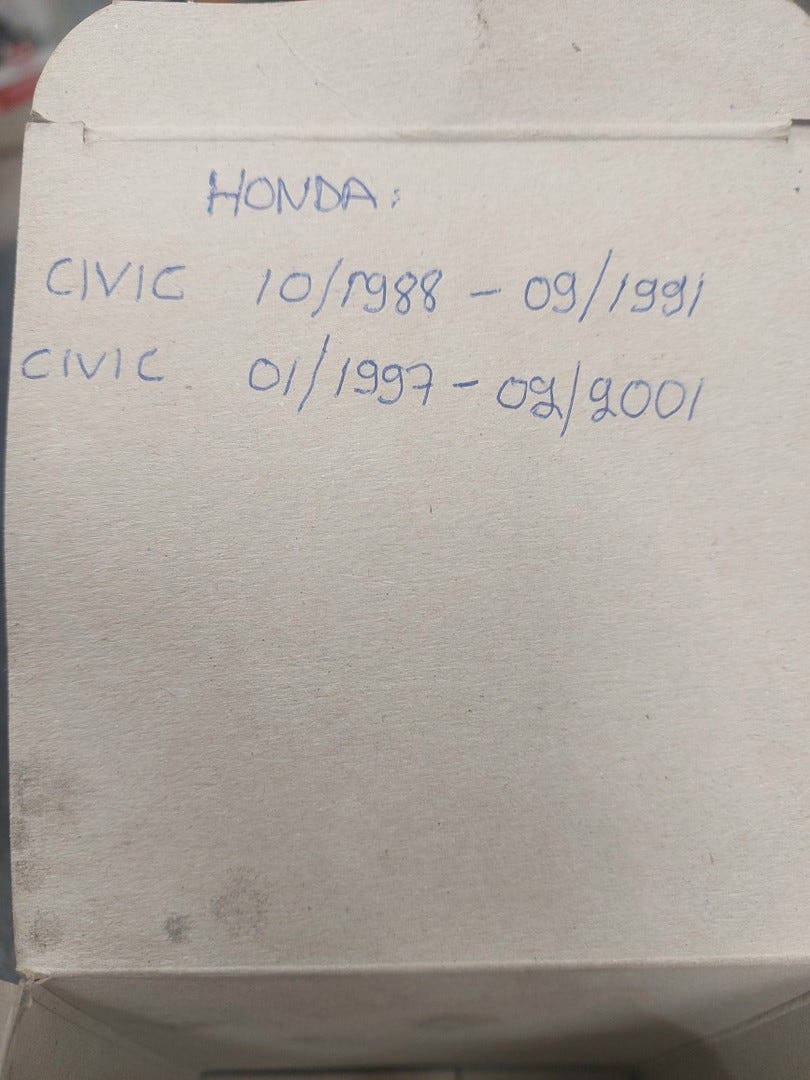 HONDA:
CIVIC 10/1988 - 09/1991
CIVIC 01/1997 - 02/2001